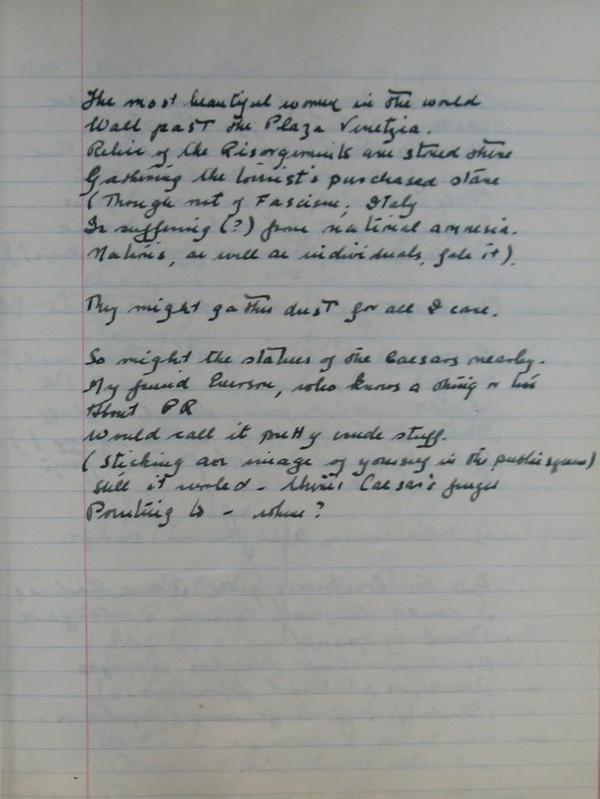 The most beautiful women in the world
Walk past the Plaza Venetzia.
Relics of the Risorgimento are stored there
Gathering the tourist's purchased stare
(Though not of Fascism; Italy
Is suffering (?) from national amnesia.
Nations, as well as individuals, fake it).
They might gather dust for all I care.
So might the statues of the Caesars nearby.
My friend Everson, who knows a thing or two
About PR
Would call it pretty crude stuff.
(Sticking an image of yourself in the public square)
Still it worked - there's Caesar's finger
Pointing to - where?